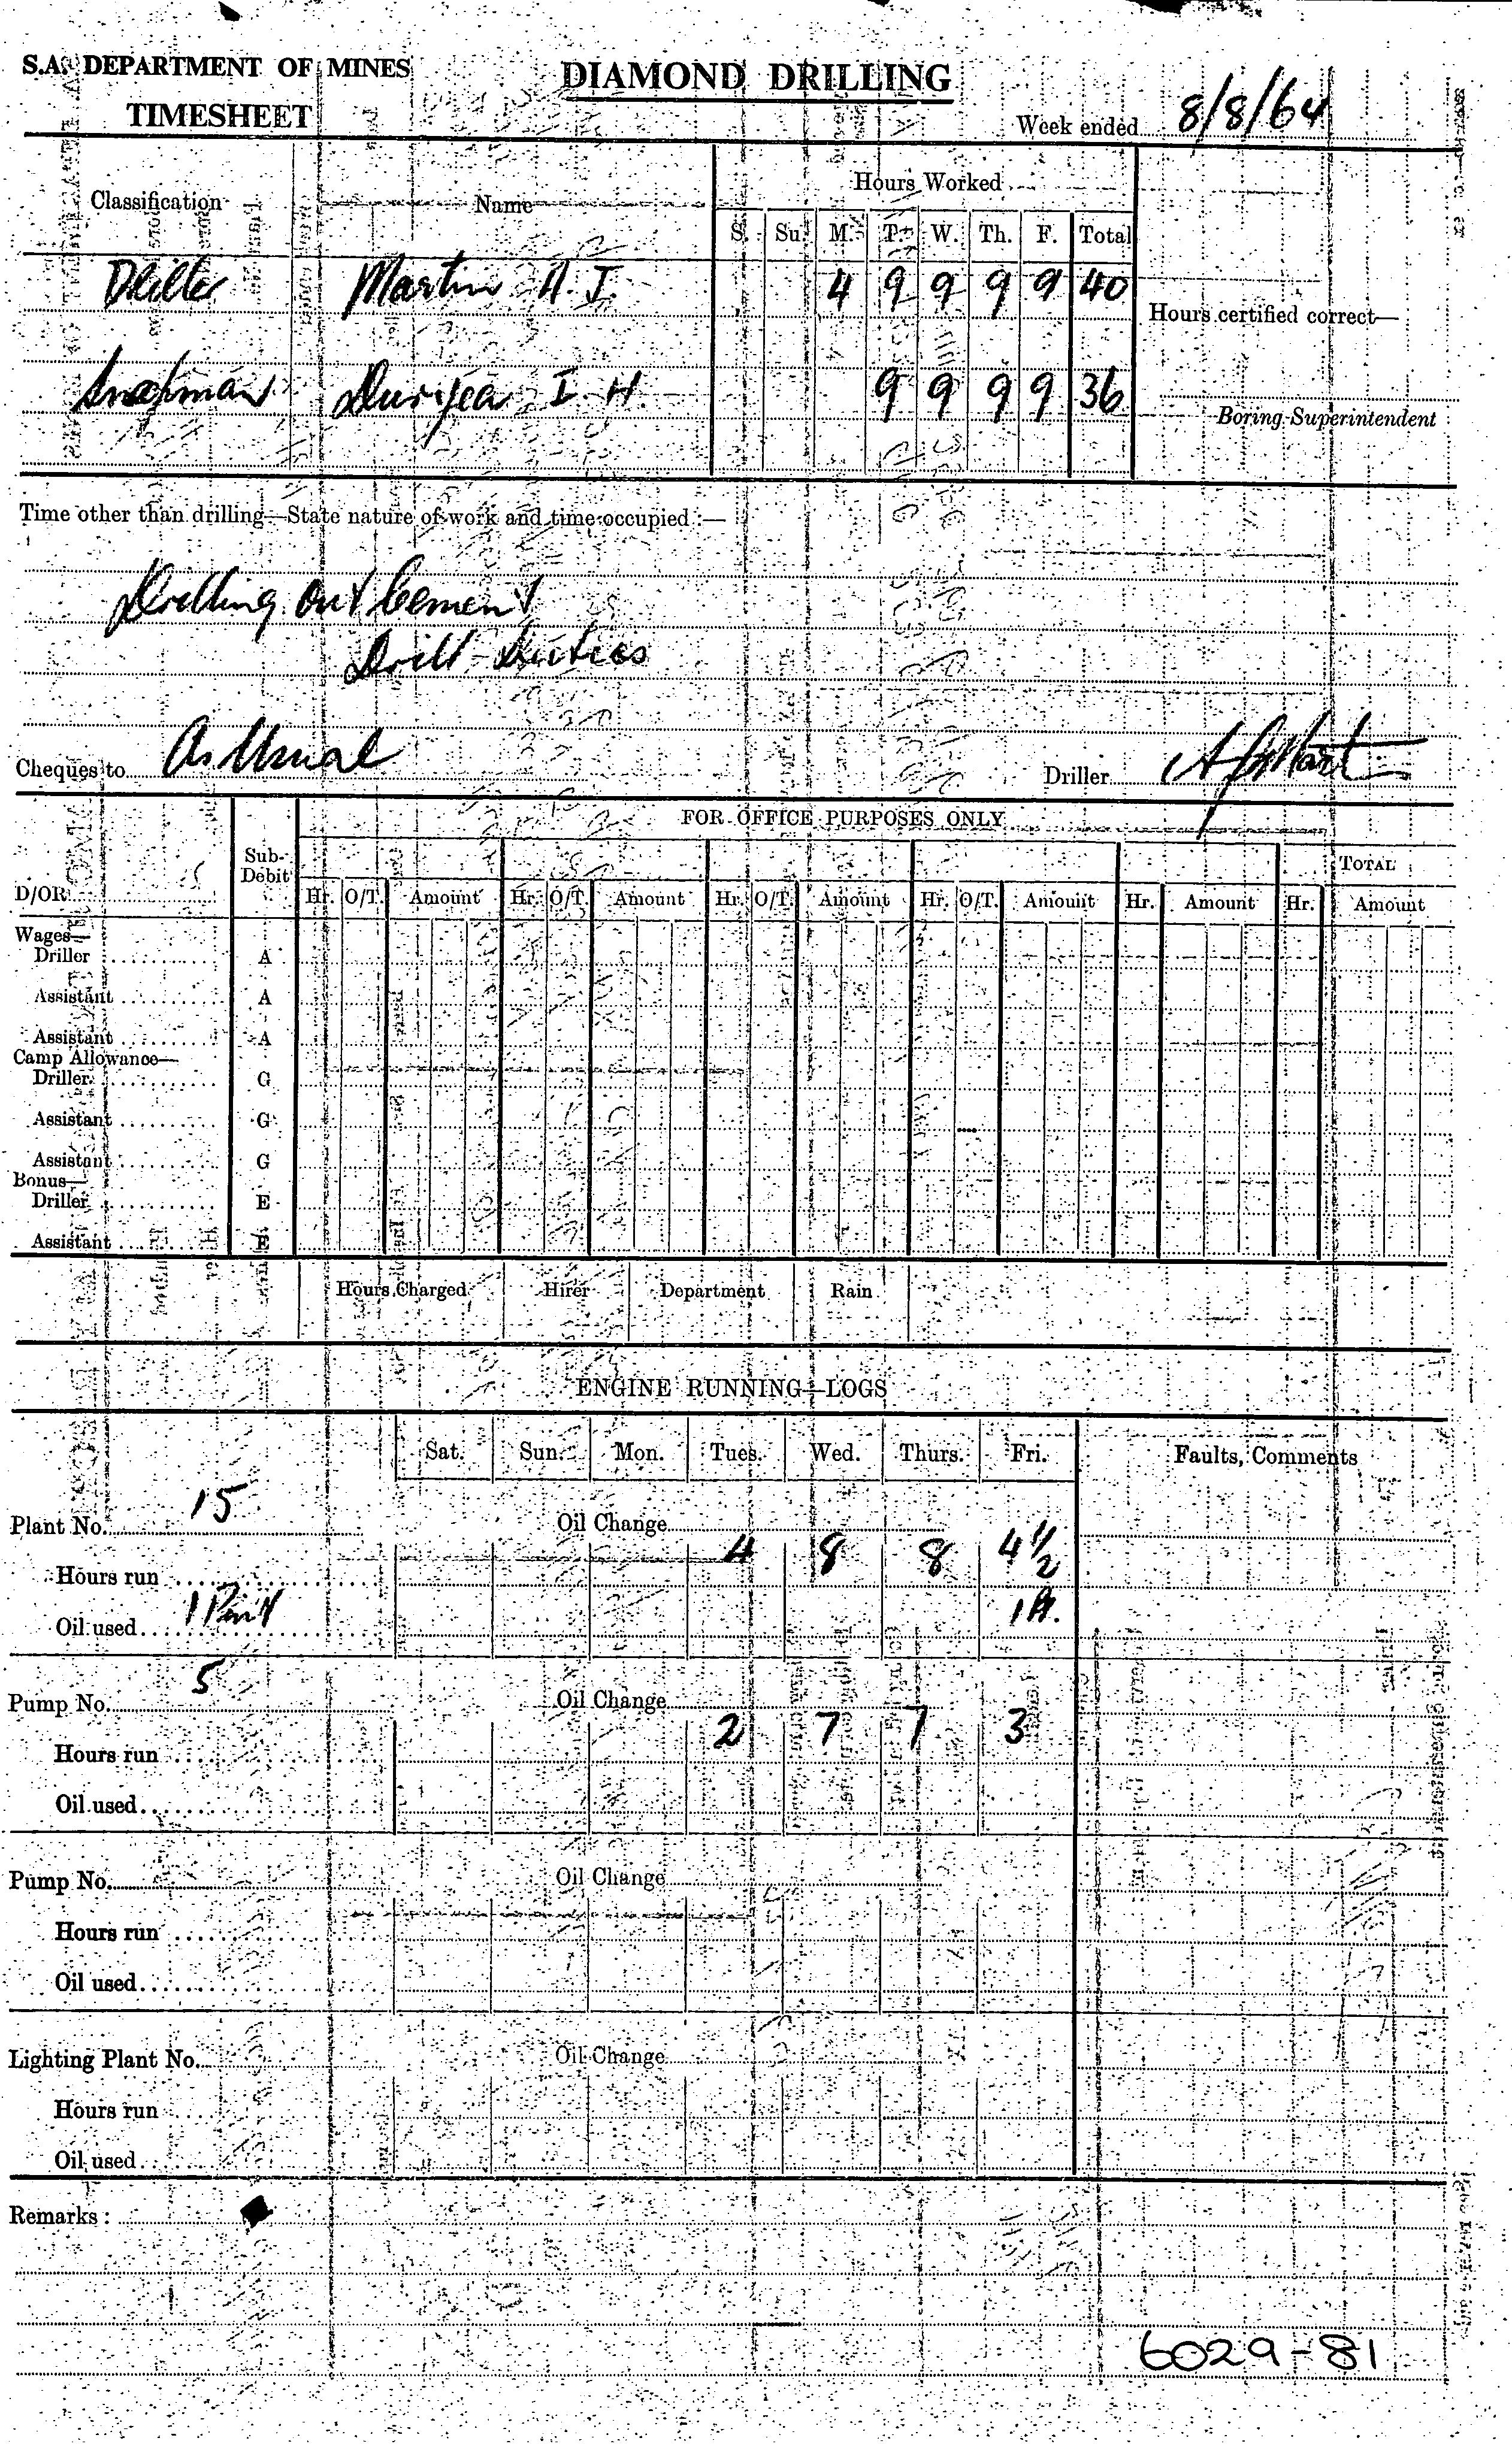 S.A. DEPARTMENT OF MINES
DIAMOND DRILLING
TIMESHEET
Week ended 8/8/64
Classification Name Hours Worked
S. Su. M. T. W. Th. F. Total
Driller Martin A. J. 4 9 9 9 9 40
Hours certified correct—
Duryea I. H. 9 9 9 9 36
Boring Superintendent
Time other than drilling—State nature of work and time occupied :—
Drilling out Cement
Drill Duties
Cheques to As Usual Driller
FOR OFFICE PURPOSES ONLY
Sub-Debit
TOTAL
D/OR Hr. O/T. Amount Hr. O/T. Amount Hr. O/T. Amount Hr. O/T. Amount Hr. Amount Hr. Amount
Wages—
Driller A
Assistant A
Assistant A
Camp Allowance—
Driller G
Assistant G
Assistant G
Bonus—
Driller E
Assistant E
Hours Charged Hirer Department Rain
ENGINE RUNNING—LOGS
Sat. Sun. Mon. Tues. Wed. Thurs. Fri. Faults, Comments
Plant No. 15 Oil Change
Hours run 4 8 8 4 1/2
Oil used 1 Pint 1 Pt.
Pump No. 5 Oil Change
Hours run 2 7 7 3
Oil used
Pump No. Oil Change
Hours run
Oil used
Lighting Plant No. Oil Change
Hours run
Oil used
Remarks :
6029-81